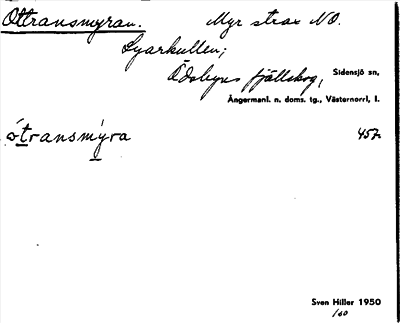 Ottransmyran. Myr strax NO.
Lyarkullen;
Ödsbyns fjällskog, Sidensjö sn,
Ångermanl. n. doms. tg., Västernorrl. l.
ótransmýra 457.
Sven Hiller 1950
/60